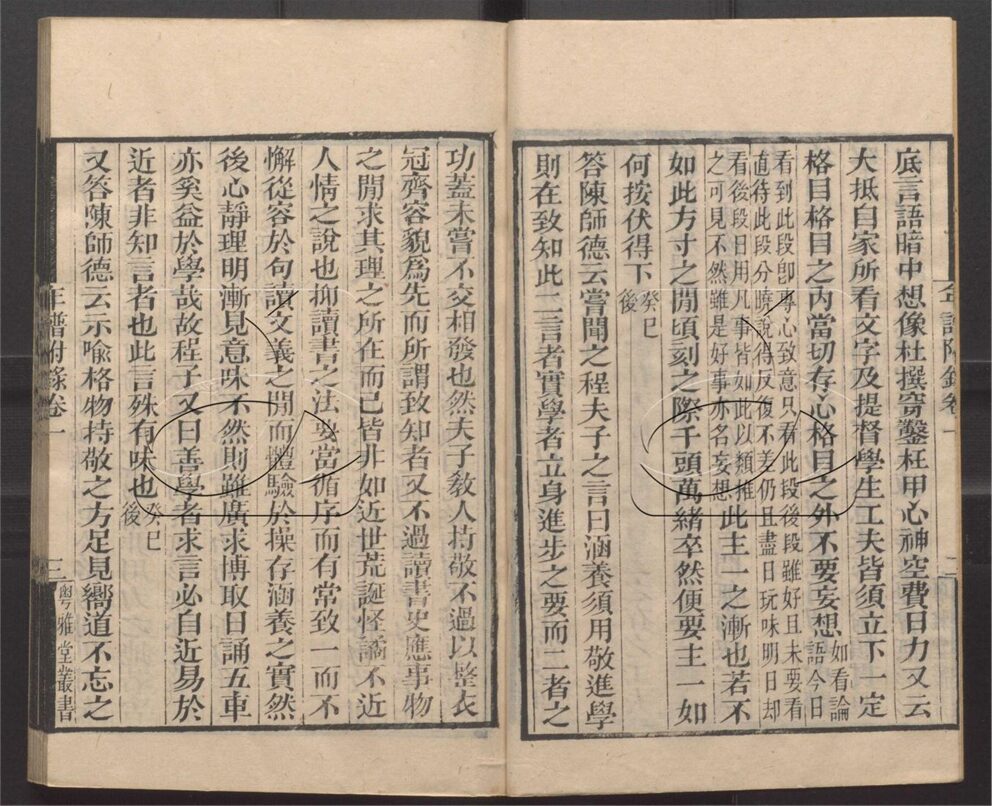 年譜附錄卷一
底言語暗中想像杜撰穿鑿枉用心神空費日力又云
大抵自家所看文字及提督學生工夫皆須立下一定
格目格目之內當切存心格目之外不要妄想如看論語今日
看到此段即專心致意只看此段後段雖好且未要看
直待此段分曉說得反復不差仍且盡日玩味明日却
看後段日用凡事皆如此以類推之可見不然雖是好事亦名妄想此主一之漸也若不
如此方寸之閒頃刻之際千頭萬緒卒然便要主一如
何按伏得下癸巳後
答陳師德云嘗聞之程夫子之言曰涵養須用敬進學
則在致知此二言者實學者立身進步之要而二者之
功蓋未嘗不交相發也然夫子教人持敬不過以整衣
冠齊容貌爲先而所謂致知者又不過讀書史應事物
之閒求其理之所在而已皆非如近世荒誕怪譎不近
人情之說也抑讀書之法要當循序而有常致一而不
懈從容於句讀文義之閒而體驗於操存涵養之實然
後心靜理明漸見意味不然則雖廣求博取日誦五車
亦奚益於學哉故程子又曰善學者求言必自近易於
近者非知言者也此言殊有味也癸巳後
又答陳師德云示喻格物持敬之方足見嚮道不忘之
年譜附錄卷一
三
粵雅堂叢書